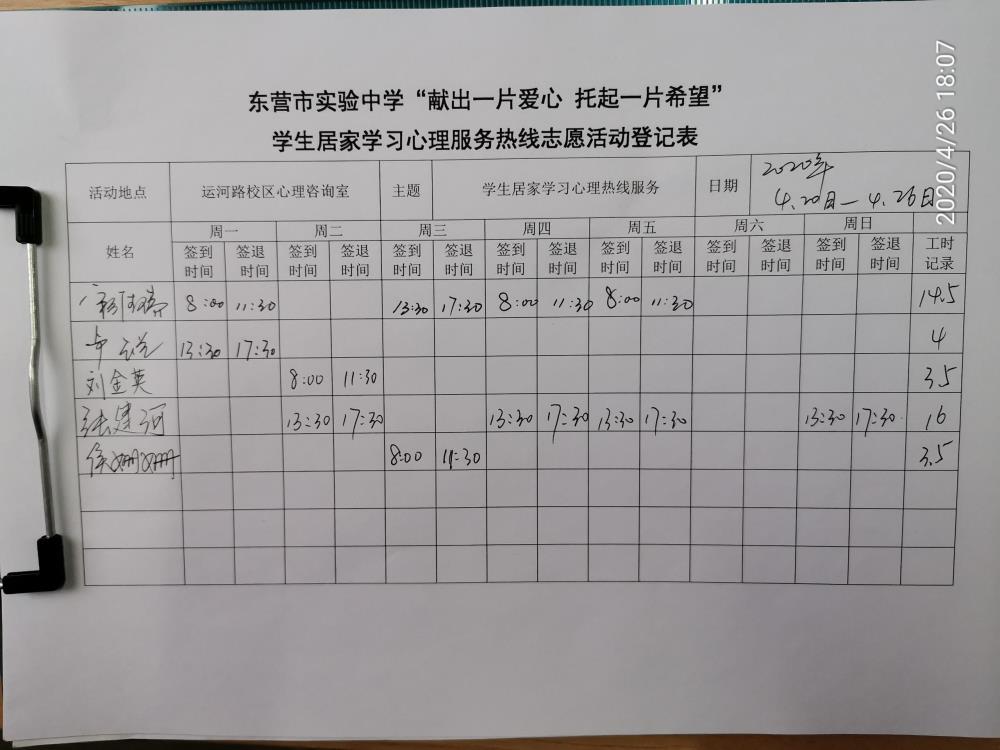 东营市实验中学“献出一片爱心 托起一片希望”
学生居家学习心理服务热线志愿活动登记表
活动地点 运河路校区心理咨询室 主题 学生居家学习心理热线服务 日期 2020年 4.20日—4.26日
姓名 周一 周二 周三 周四 周五 周六 周日 工时记录
签到时间 签退时间 签到时间 签退时间 签到时间 签退时间 签到时间 签退时间 签到时间 签退时间 签到时间 签退时间 签到时间 签退时间
8:00 11:30 13:30 17:30 8:00 11:30 8:00 11:30 14.5
13:30 17:30 4
刘金英 8:00 11:30 3.5
张建河 13:30 17:30 13:30 17:30 13:30 17:30 13:30 17:30 16
徐姗姗 8:00 11:30 3.5
2020/4/26 18:07